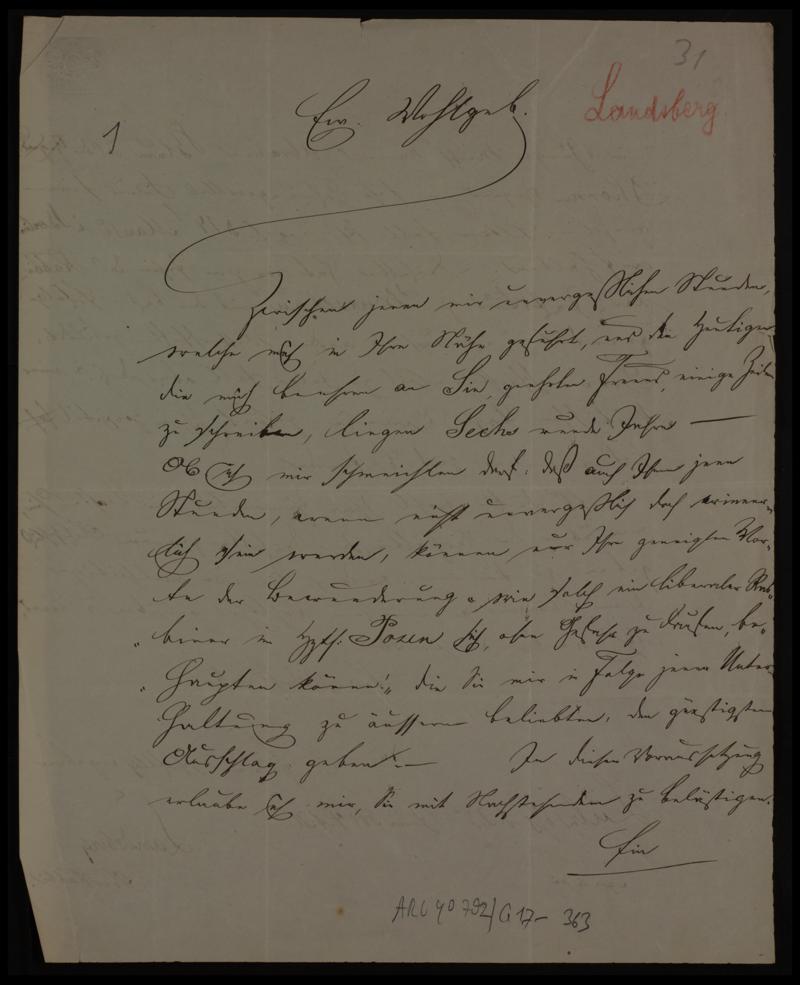 31
Landsberg
1
Ew. Wohlgeb.
Zwischen jenen mir unvergeßlichen Stunden,
welche mich in Ihre Nähe geführt, und den heutigen
die mich beehren an Sie, geehrter Freund, einige Zeilen
zu schreiben, liegen Sechs runde Jahre —
Ob ich mir schmeichlen darf: daß auch Ihnen jene
Stunden, wenn nicht unvergeßlich doch erinner-
lich sein werden, können nur Ihre geneigten Wor-
te der Bewunderung „wie solch ein liberaler Rab-
„biner im Hgth. Posen sich, ohne Gefahr zu laufen, be-
„haupten könne!" die Sie mir in Folge jener Unter-
haltung zu äussern beliebten, den günstigsten
Ausschlag geben. — In dieser Voraussetzung
erlaube ich mir, Sie mit Nachstehendem zu belästigen.
Ein
ARC 4° 792/G 17- 363